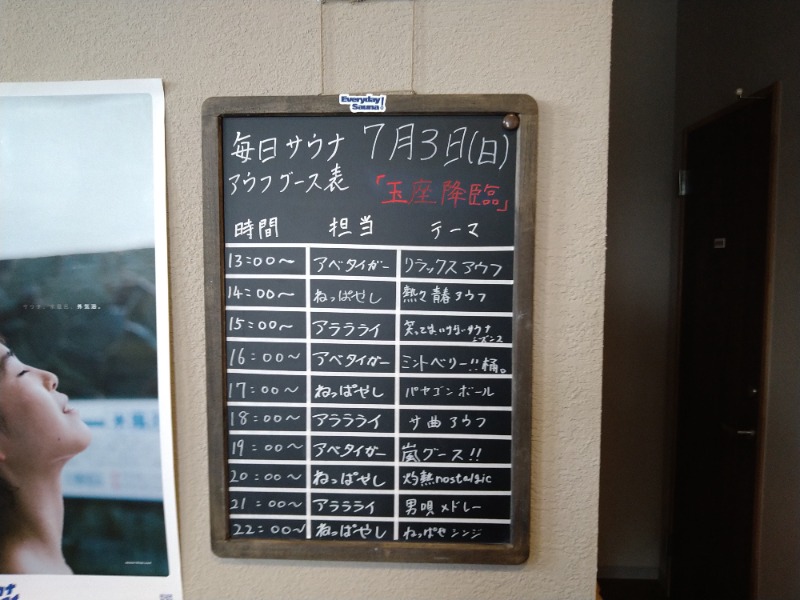 Everyday
Sauna!
毎日サウナ 7月3日(日)
アウフグース表 「玉座降臨」
時間 担当 テーマ
13:00〜 アベタイガー リラックスアウフ
14:00〜 ねっぱやし 熱々青春アウフ
15:00〜 アラララィ 笑ってはいけないサウナ
16:00〜 アベタイガー ミントベリー!!桶。
17:00〜 ねっぱやし パヤゴンボール
18:00〜 アラララィ サ曲アウフ
19:00〜 アベタイガー 嵐グース!!
20:00〜 ねっぱやし 灼熱nostalgic
21:00〜 アラララィ 男唄メドレー
22:00〜 ねっぱやし ねっぱやシンジ
外気浴。